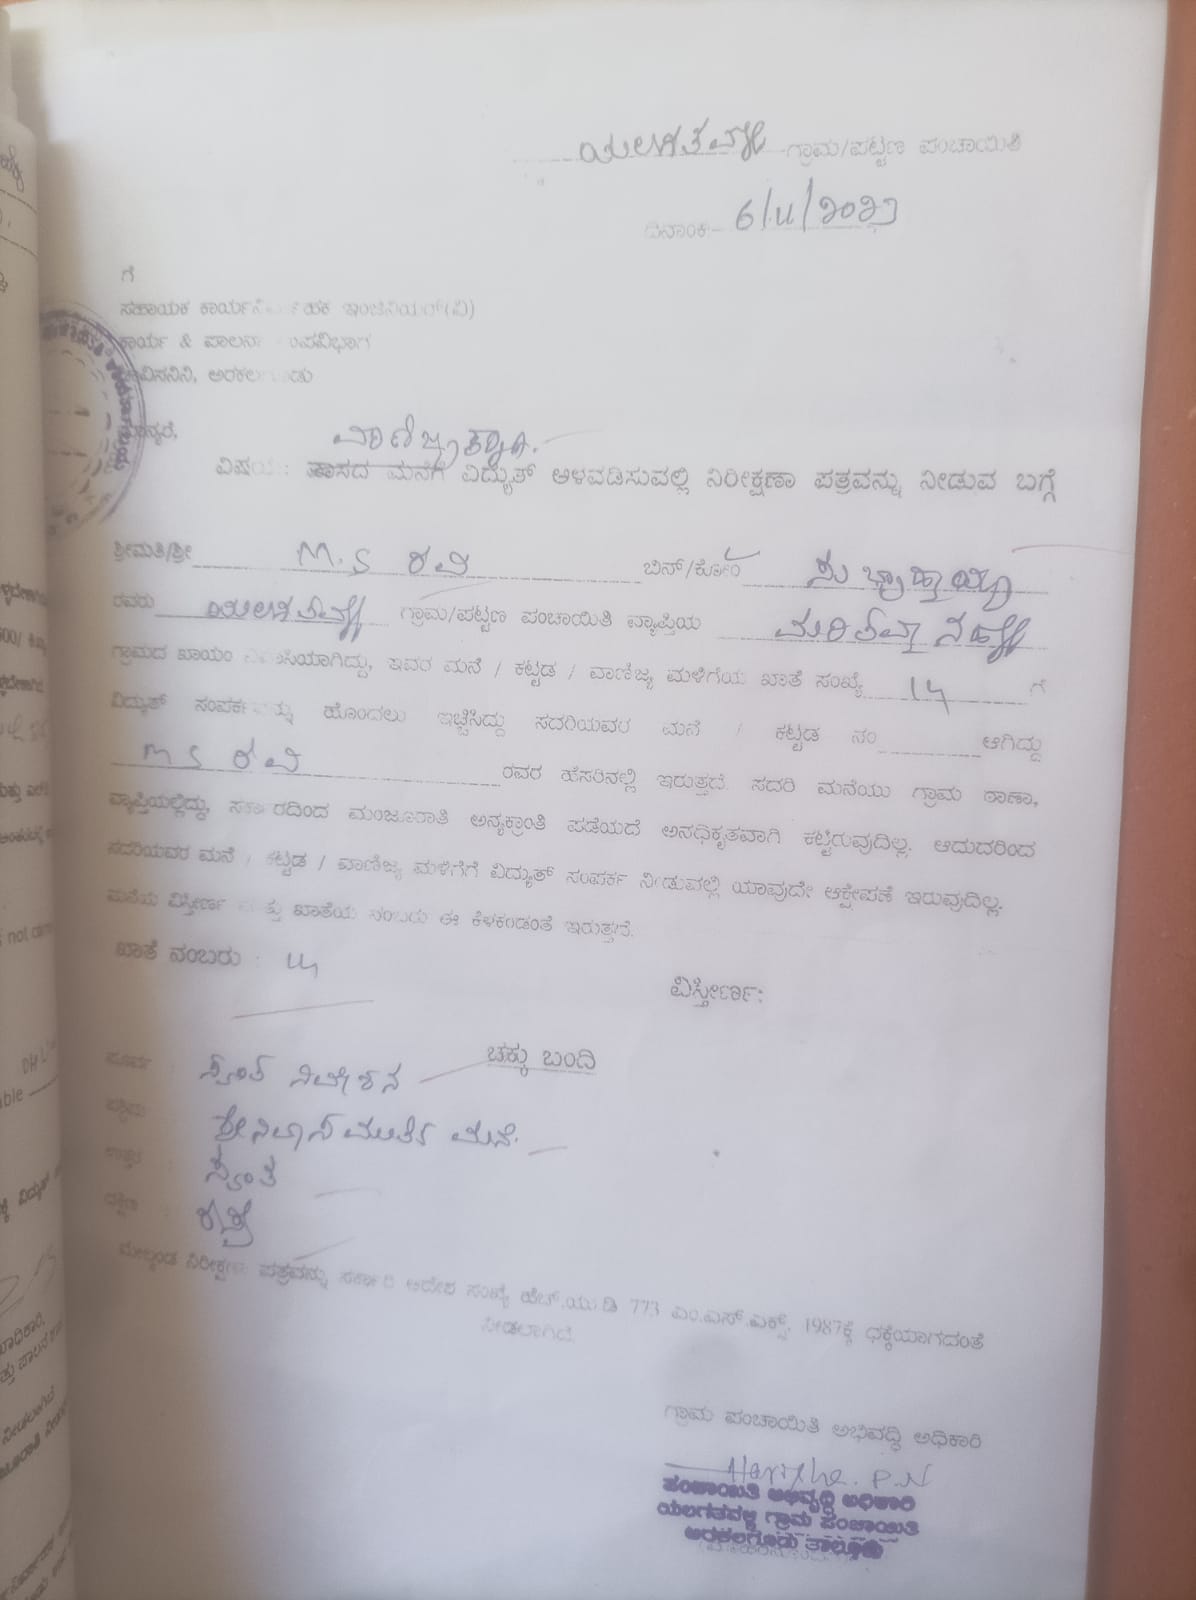 ಯಲಗತವಳ್ಳಿ ಗ್ರಾಮ/ಪಟ್ಟಣ ಪಂಚಾಯಿತಿ
ದಿನಾಂಕ:- 6/11/2023
ಗೆ
ಸಹಾಯಕ ಇಂಜಿನಿಯರ್(ವಿ)
ಕಾರ್ಯ & ಪಾಲನಾ
ಚಾವಿಸನಿನಿ, ಅರಕಲಗೂಡು
ಮಾನ್ಯರೆ,
ವಾಣಿಜ್ಯ
ವಿಷಯ : ವಾಸದ ಮನೆಗೆ ವಿದ್ಯುತ್ ಅಳವಡಿಸುವಲ್ಲಿ ನಿರೀಕ್ಷಣಾ ಪತ್ರವನ್ನು ನೀಡುವ ಬಗ್ಗೆ
ಶ್ರೀಮತಿ/ಶ್ರೀ M.S ರವಿ ಬಿನ್/ಕೋಂ
ರವರು ಯಲಗತವಳ್ಳಿ ಗ್ರಾಮ/ಪಟ್ಟಣ ಪಂಚಾಯಿತಿ ವ್ಯಾಪ್ತಿಯ
ಗ್ರಾಮದ ಖಾಯಂ ನಿವಾಸಿಯಾಗಿದ್ದು, ಇವರ ಮನೆ / ಕಟ್ಟಡ / ವಾಣಿಜ್ಯ ಮಳಿಗೆಯ ಖಾತೆ ಸಂಖ್ಯೆ 14 ಗೆ
ವಿದ್ಯುತ್ ಸಂಪರ್ಕವನ್ನು ಹೊಂದಲು ಇಚ್ಚಿಸಿದ್ದು ಸದರಿಯವರ ಮನೆ / ಕಟ್ಟಡ ನಂ ಆಗಿದ್ದು
M S ರವಿ ರವರ ಹೆಸರಿನಲ್ಲಿ ಇರುತ್ತದೆ. ಸದರಿ ಮನೆಯು ಗ್ರಾಮ ಠಾಣಾ,
ವ್ಯಾಪ್ತಿಯಲ್ಲಿದ್ದು, ಸರ್ಕಾರದಿಂದ ಮಂಜೂರಾತಿ ಅನ್ಯಕ್ರಾಂತಿ ಪಡೆಯದೆ ಅನಧಿಕೃತವಾಗಿ ಕಟ್ಟಿರುವುದಿಲ್ಲ. ಆದುದರಿಂದ
ಸದರಿಯವರ ಮನೆ / ಕಟ್ಟಡ / ವಾಣಿಜ್ಯ ಮಳಿಗೆಗೆ ವಿದ್ಯುತ್ ಸಂಪರ್ಕ ನೀಡುವಲ್ಲಿ ಯಾವುದೇ ಆಕ್ಷೇಪಣೆ ಇರುವುದಿಲ್ಲ.
ಮನೆಯ ವಿಸ್ತೀರ್ಣ ಮತ್ತು ಖಾತೆಯ ನಂಬರು ಈ ಕೆಳಕಂಡಂತೆ ಇರುತ್ತದೆ.
ಖಾತೆ ನಂಬರು : 14
ವಿಸ್ತೀರ್ಣ:
ಚಕ್ಕು ಬಂದಿ
ಪೂರ್ವ : ಸ್ವಂತ ನಿವೇಶನ
ಪಶ್ಚಿಮ : ಮನೆ
ಉತ್ತರ : ಸ್ವಂತ
ದಕ್ಷಿಣ : ರಸ್ತೆ
ಮೇಲ್ಕಂಡ ನಿರೀಕ್ಷಣಾ ಪತ್ರವನ್ನು ಸರ್ಕಾರಿ ಆದೇಶ ಸಂಖ್ಯೆ ಹೆಚ್.ಯು.ಡಿ 773 ಎಂ.ಎಸ್.ಎಕ್ಸ್. 1987ಕ್ಕೆ ಧಕ್ಕೆಯಾಗದಂತೆ
ನೀಡಲಾಗಿದೆ.
ಗ್ರಾಮ ಪಂಚಾಯಿತಿ ಅಭಿವೃದ್ಧಿ ಅಧಿಕಾರಿ
P.N
ಪಂಚಾಯಿತಿ ಅಭಿವೃದ್ಧಿ ಅಧಿಕಾರಿ
ಯಲಗತವಳ್ಳಿ ಗ್ರಾಮ ಪಂಚಾಯಿತಿ
ಅರಕಲಗೂಡು ತಾಲ್ಲೂಕು